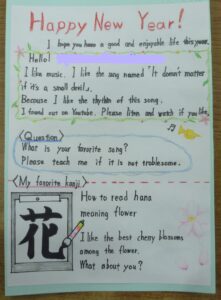 Happy New Year!
I hope you have a good and enjoyable life this year.
Hello!
I like music. I like the song named "It doesn't matter
if it's a small devil".
Because I like the rhythm of this song.
I found out on Youtube. Please listen and watch if you like.
<Question>
What is your favorite song?
Please teach me if it is not troublesome.
<My favorite kanji>
花
How to read hana
meaning flower
I like the best cherry blossoms
among the flower.
What about you?